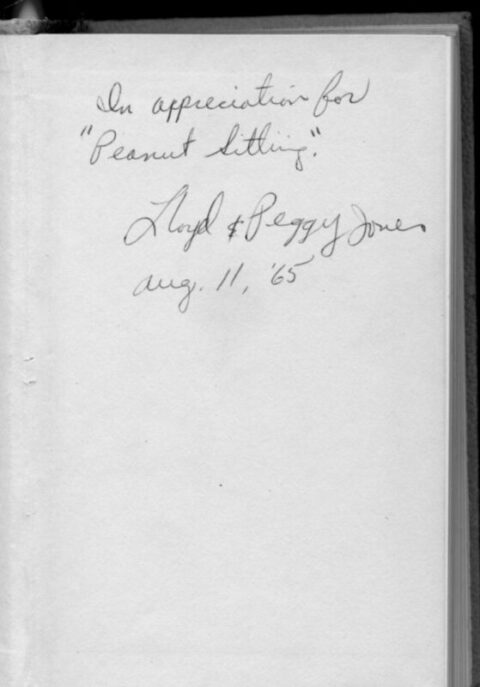 In appreciation for
"Peanut Sitting".
Lloyd & Peggy Jones
Aug. 11, '65